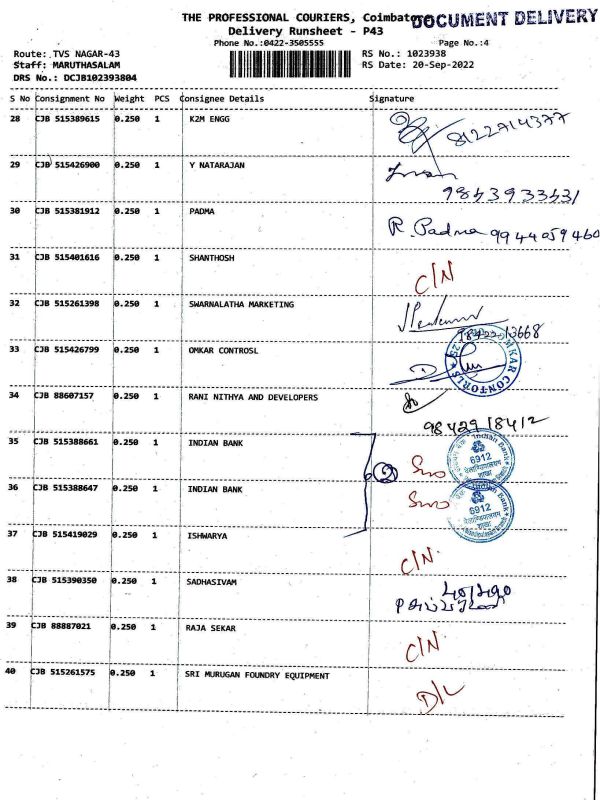 THE PROFESSIONAL COURIERS, Coimbatore
DOCUMENT DELIVERY
Delivery Runsheet - P43
Phone No.:0422-3505555
Page No.:4
Route: TVS NAGAR-43
RS No.: 1023938
Staff: MARUTHASALAM
RS Date: 20-Sep-2022
DRS No.: DCJB102393804
S No Consignment No Weight PCS Consignee Details Signature
28 CJB 515389615 0.250 1 K2M ENGG
8122714377
29 CJB 515426900 0.250 1 Y NATARAJAN
9843933431
30 CJB 515381912 0.250 1 PADMA R. Padma 9944059460
31 CJB 515401616 0.250 1 SHANTHOSH C/N
32 CJB 515261398 0.250 1 SWARNALATHA MARKETING
33 CJB 515426799 0.250 1 OMKAR CONTROSL
OMKAR CONTORLS
34 CJB 88607157 0.250 1 RANI NITHYA AND DEVELOPERS
9842918412
35 CJB 515388661 0.250 1 INDIAN BANK
2
Indian Bank
6912
शाखा
36 CJB 515388647 0.250 1 INDIAN BANK
Indian Bank
6912
शाखा
37 CJB 515419029 0.250 1 ISHWARYA C/N.
38 CJB 515390350 0.250 1 SADHASIVAM
39 CJB 88887021 0.250 1 RAJA SEKAR C/N
40 CJB 515261575 0.250 1 SRI MURUGAN FOUNDRY EQUIPMENT D/L